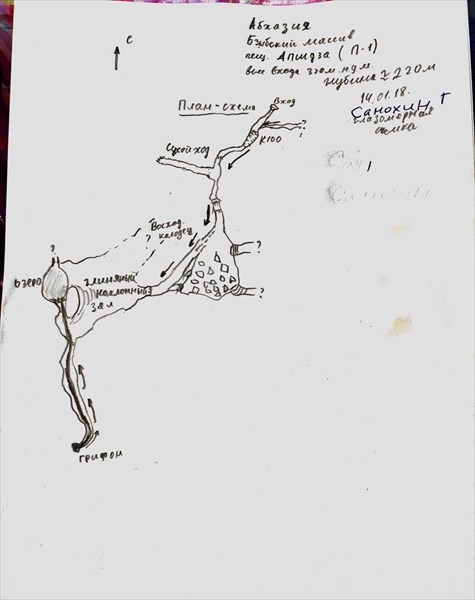 Абхазия
Бзыбский массив
пещ. Апшдза (П-1)
выс входа 320м.н.у.м.
глубина ≈ 220м
14.01.18.
Санохин Г
глазомерная
съёмка
С
План-схема
Вход
?
К100
Сухой ход
Восход.
колодец
?
?
?
озеро
глиняный
наклонный
зал
?
?
грифон